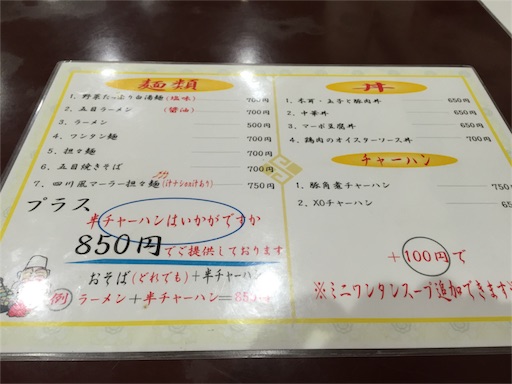 麺類
1. 野菜たっぷり白湯麺(塩味) 700円
2. 五目ラーメン (醤油) 700円
3. ラーメン 500円
4. ワンタン麺 700円
5. 担々麺 700円
6. 五目焼きそば 700円
7. 四川風マーラー担々麺 750円
プラス
半チャーハンはいかがですか
850円でご提供しております
おそば(どれでも)+半チャーハン
例 ラーメン+半チャーハン=85
丼
1. 木耳・玉子と豚肉丼 650円
2. 中華丼 650円
3. マーボ豆腐丼 650円
4. 鶏肉のオイスターソース丼 650円
チャーハン
1. 豚角煮チャーハン 750
2. XOチャーハン 650
+100円で
※ミニワンタンスープ追加できます